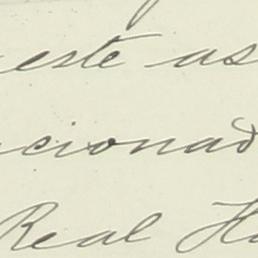 este as
cionad
Real Ha